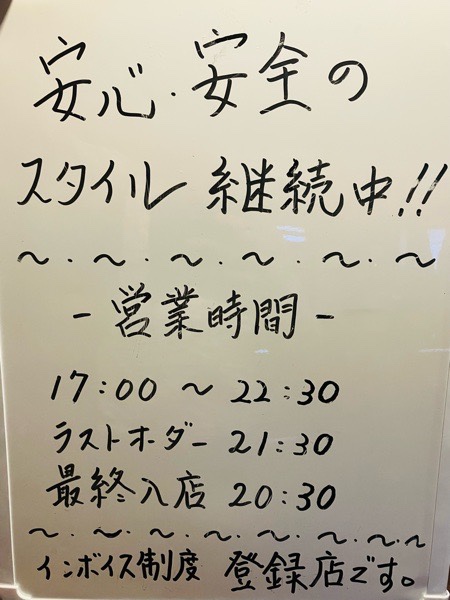 安心・安全の
スタイル 継続中!!
～・～・～・～・～・～
- 営業時間 -
17:00 ～ 22:30
ラストオーダー 21:30
最終入店 20:30
～・～・～・～・～・～・～・～
インボイス制度 登録店です。